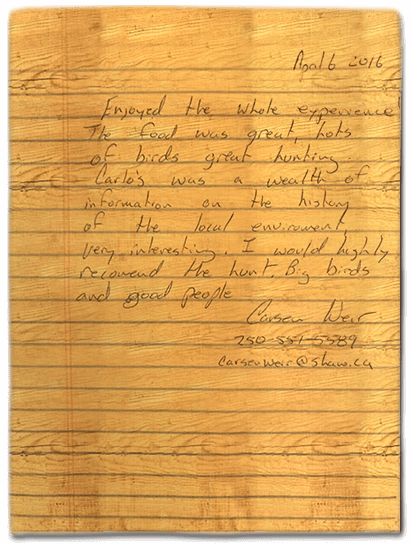 April 6 2016
Enjoyed the whole experience!
The food was great, lots
of birds great hunting.
Carlo's was a wealth of
information on the history
of the local enviroment,
very interesting. I would highly
recomend the hunt. Big birds
and good people
Carsen Weir
250-551-5589
carsenweir@shaw.ca